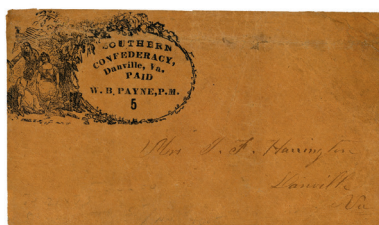 SOUTHERN
CONFEDERACY,
Danville, Va.
PAID
W. B. PAYNE, P.M.
5
Mrs. J. F. Harrington
Danville
Va